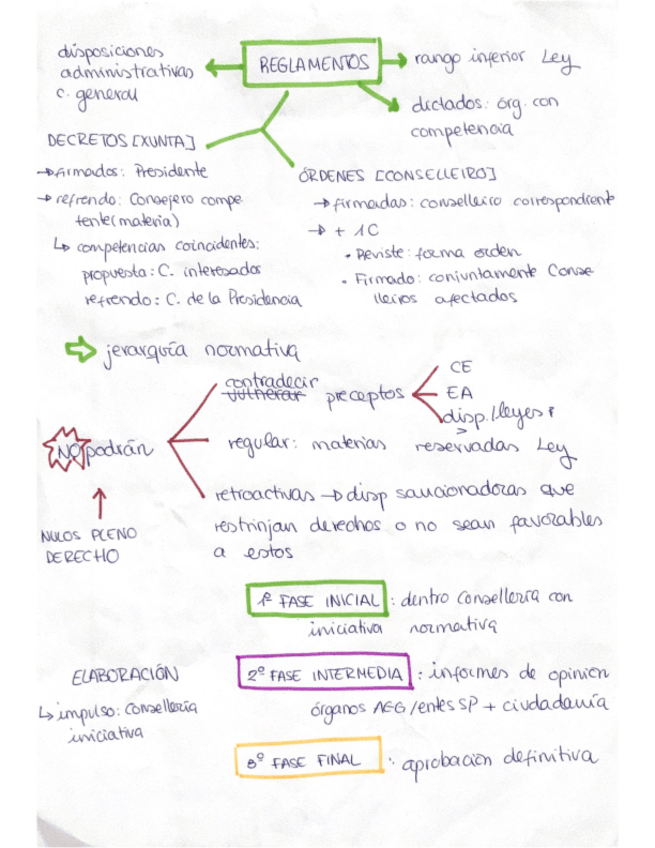 REGLAMENTOS
disposiciones
administrativas
c. general
rango inferior Ley
dictados: órg. con
competencia
DECRETOS [XUNTA]
→ firmados: Presidente
→ refrendo: Consejero compe
tente (materia)
↳ competencias coincidentes:
propuesta: C. interesados
refrendo: C. de la Presidencia
ÓRDENES [CONSELLEIRO]
→ firmadas: conselleiro correspondiente
→ + 1C
• Reviste: forma orden
• Firmado: conjuntamente Conse
lleiros afectados
⇨ jerarquía normativa
NO podrán
contradecir
vulnerar preceptos
CE
EA
disp./leyes
>
regular: materias reservadas Ley
retroactivas → disp saucionadoras que
restrinjan derechos o no sean favorables
a estos
NULOS PLENO
DERECHO
1º FASE INICIAL : dentro Consellería con
iniciativa normativa
ELABORACIÓN
↳ impulso: Consellería
iniciativa
2º FASE INTERMEDIA : informes de opinion
órganos AEG/entes SP + ciudadanía
3º FASE FINAL : aprobación definitiva